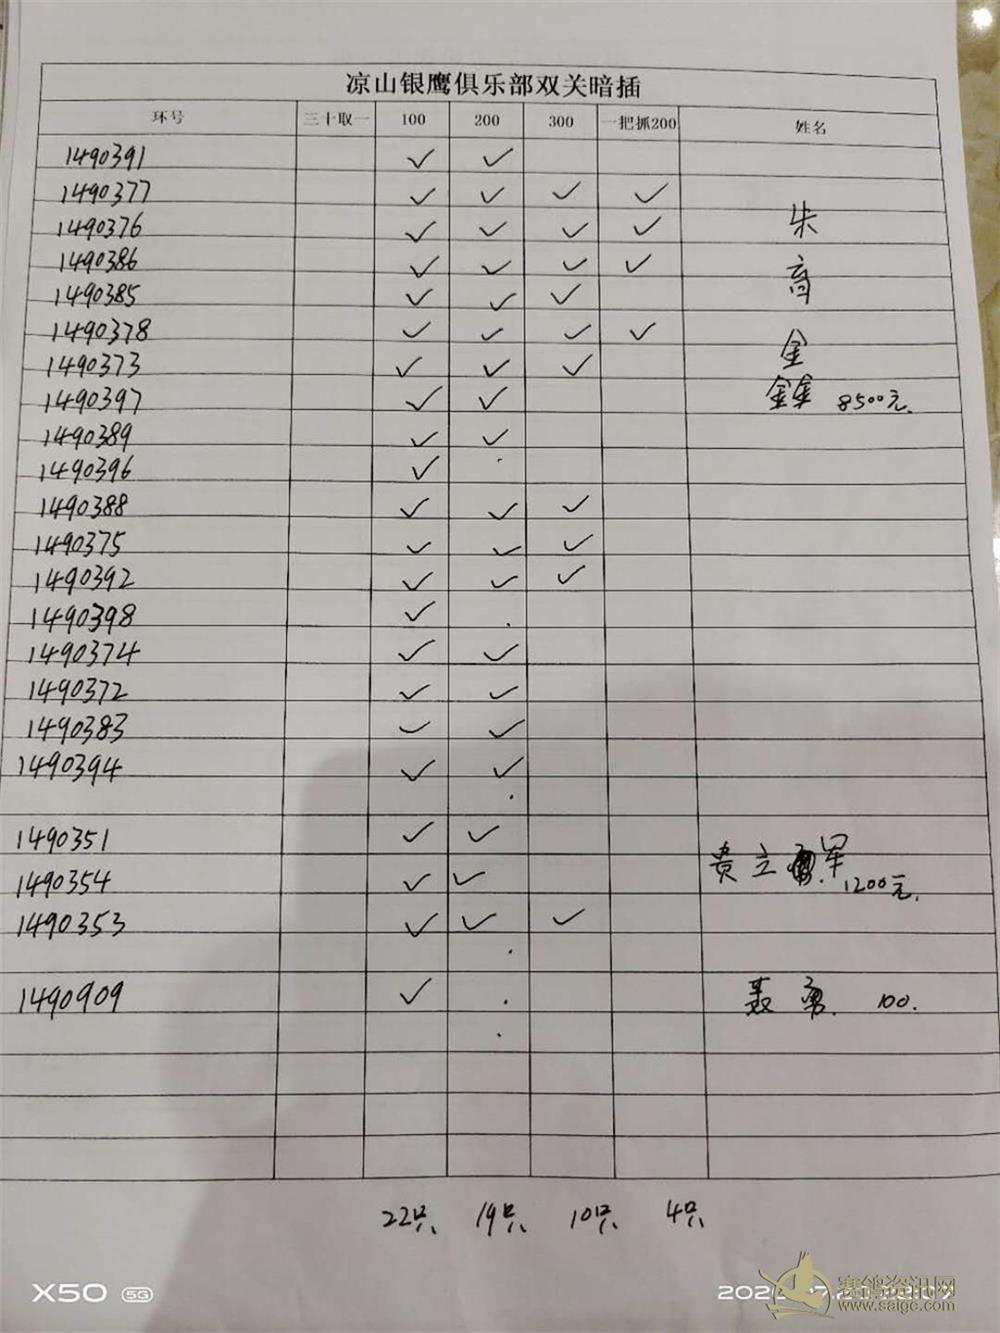 凉山银鹰俱乐部双关暗插
环号 三十取一 100 200 300 一把抓200 姓名
1490391 ✓ ✓
1490377 ✓ ✓ ✓ ✓
1490376 ✓ ✓ ✓ ✓ 朱
1490386 ✓ ✓ ✓ ✓ 高
1490385 ✓ ✓ ✓
1490378 ✓ ✓ ✓ ✓ 金
1490373 ✓ ✓ ✓
1490397 ✓ ✓ 8500元.
1490389 ✓ ✓
1490396 ✓
1490388 ✓ ✓ ✓
1490375 ✓ ✓ ✓
1490392 ✓ ✓ ✓
1490398 ✓
1490374 ✓ ✓
1490372 ✓ ✓
1490383 ✓ ✓
1490394 ✓ ✓
1490351 ✓ ✓
1490354 ✓ ✓ 立 军 1200元.
1490353 ✓ ✓ ✓
1490909 ✓ 勇. 100.
22只 19只 10只 4只
X50 5G
赛鸽资讯网
www.saigc.com